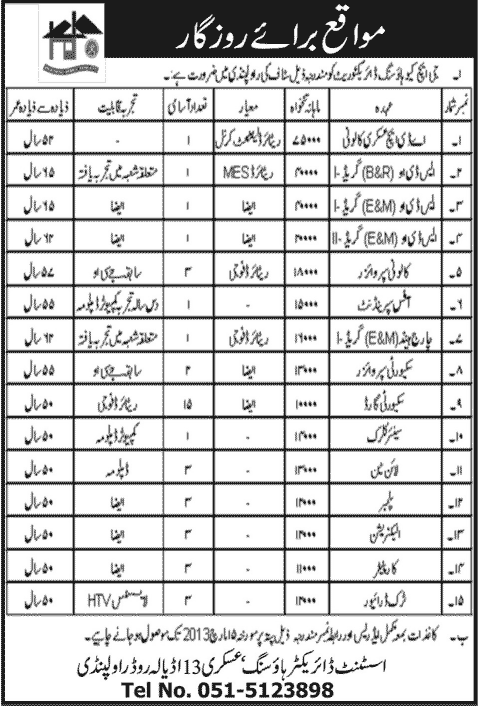 مواقع برائے روزگار
۱۔ جی ایچ کیو ہاؤسنگ ڈائریکٹوریٹ کو مندرجہ ذیل سٹاف کی راولپنڈی میں ضرورت ہے:۔
نمبر شمار عہدہ ماہانہ تنخواہ معیار تعداد آسامی تجربہ قابلیت زیادہ سے زیادہ عمر
۱۔ اے ڈی ایچ عسکری کالونی ۷۵۰۰۰ ریٹائرڈ لیفٹیننٹ کرنل ۱ - ۵۲ سال
۲۔ ایس ڈی او (B&R) گریڈ-I ۲۰۰۰۰ ریٹائرڈ MES ۱ متعلقہ شعبہ میں تجربہ یافتہ ۶۵ سال
۳۔ ایس ڈی او (E&M) گریڈ-I ۲۰۰۰۰ ایضا ۱ ایضا ۶۵ سال
۴۔ ایس ڈی او (E&M) گریڈ-II ۲۰۰۰۰ ایضا ۱ ایضا ۶۲ سال
۵۔ کالونی سپروائزر ۱۸۰۰۰ ریٹائرڈ فوجی ۳ سابقہ جے سی او ۵۷ سال
۶۔ آفس سپرینڈنٹ ۱۵۰۰۰ - ۱ دس سالہ تجربہ کمپیوٹر ڈپلومہ ۵۵ سال
۷۔ چارج ہینڈ (E&M) گریڈ-I ۱۶۰۰۰ ریٹائرڈ فوجی ۱ متعلقہ شعبہ میں تجربہ یافتہ ۶۲ سال
۸۔ سکیورٹی سپروائزر ۱۳۰۰۰ ایضا ۲ سابقہ جے سی او ۵۵ سال
۹۔ سکیورٹی گارڈ ۱۰۰۰۰ ایضا ۱۵ ریٹائرڈ فوجی ۵۰ سال
۱۰۔ سینئر کلرک ۱۴۰۰۰ - ۱ کمپیوٹر ڈپلومہ ۵۰ سال
۱۱۔ لائن مین ۱۳۰۰۰ - ۳ ڈپلومہ ۵۰ سال
۱۲۔ پلمبر ۱۲۰۰۰ - ۳ ایضا ۵۰ سال
۱۳۔ الیکٹریشن ۱۲۰۰۰ - ۳ ایضا ۵۰ سال
۱۴۔ کارپینٹر ۱۱۰۰۰ - ۳ ایضا ۵۰ سال
۱۵۔ ٹرک ڈرائیور ۱۲۰۰۰ - ۳ لائسنس HTV ۵۰ سال
ب۔ کاغذات بمعہ مکمل ایڈریس اور رابطہ نمبر مندرجہ ذیل پتہ پر مورخہ ۱۵ مارچ 2013 تک موصول ہو جانے چاہیے۔
اسسٹنٹ ڈائریکٹر ہاؤسنگ، عسکری 13 اڈیالہ روڈ راولپنڈی
Tel No. 051-5123898